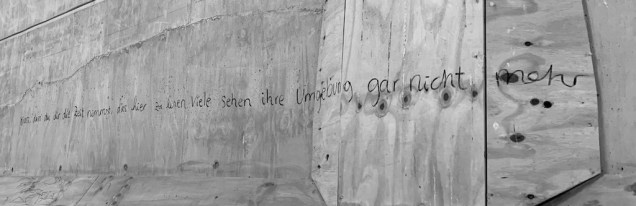 du dir die Zeit nimmst, das hier zu lesen Viele sehen ihre Umgebung gar nicht mehr